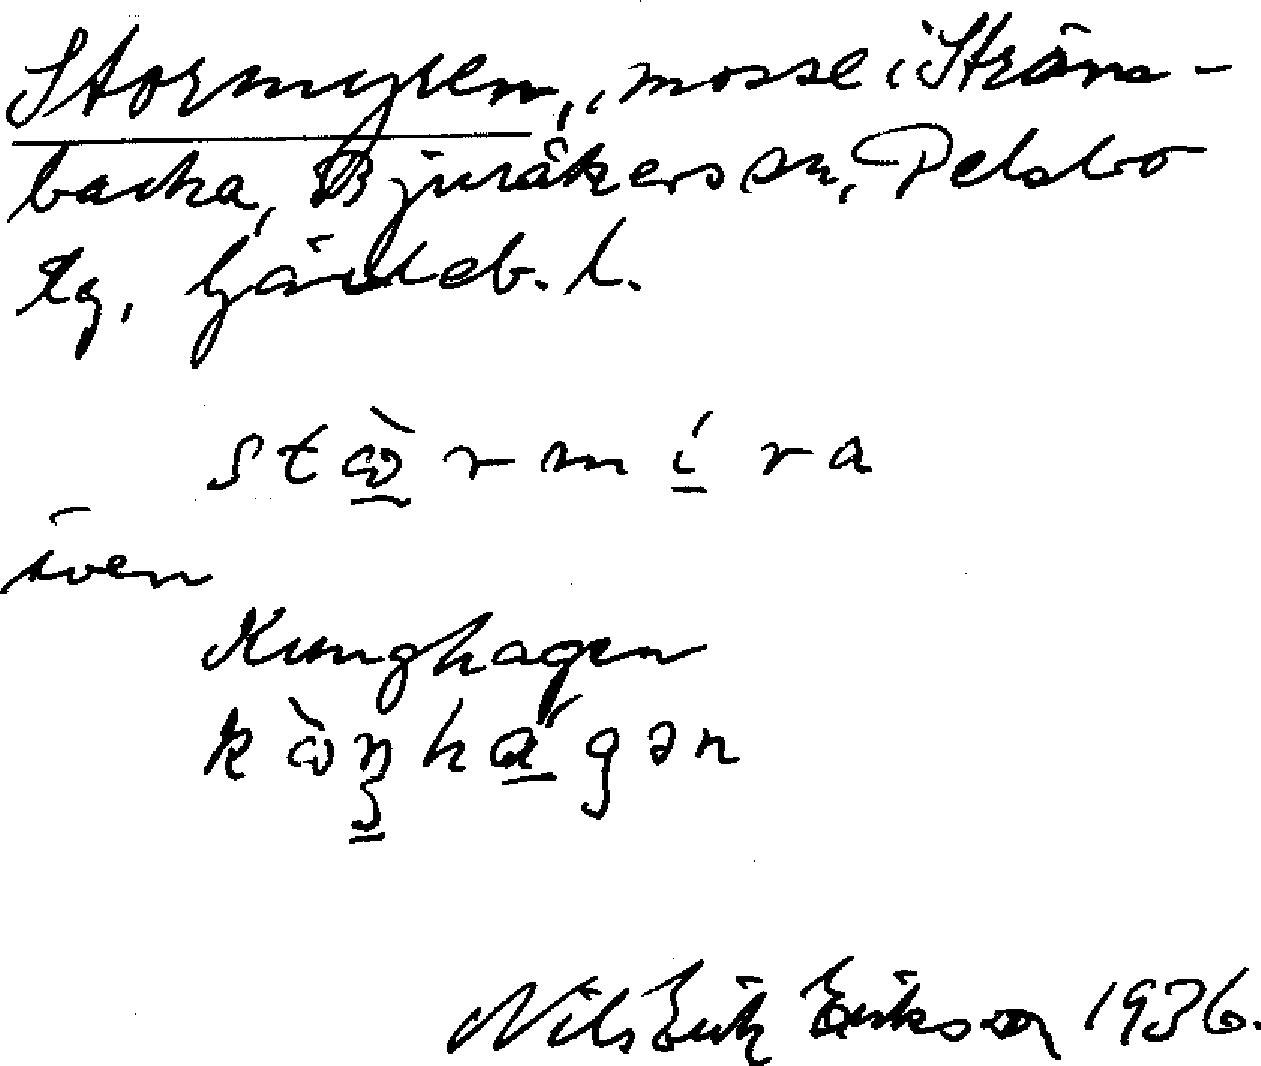 Stormyren, mosse i Ström-
backa, Bjuråkers sn, Delsbo
tg, Gävleb. l.
stὼrmíra
även
Kunghagen
kὼŋhágən
Nils Erik Erikson 1936.